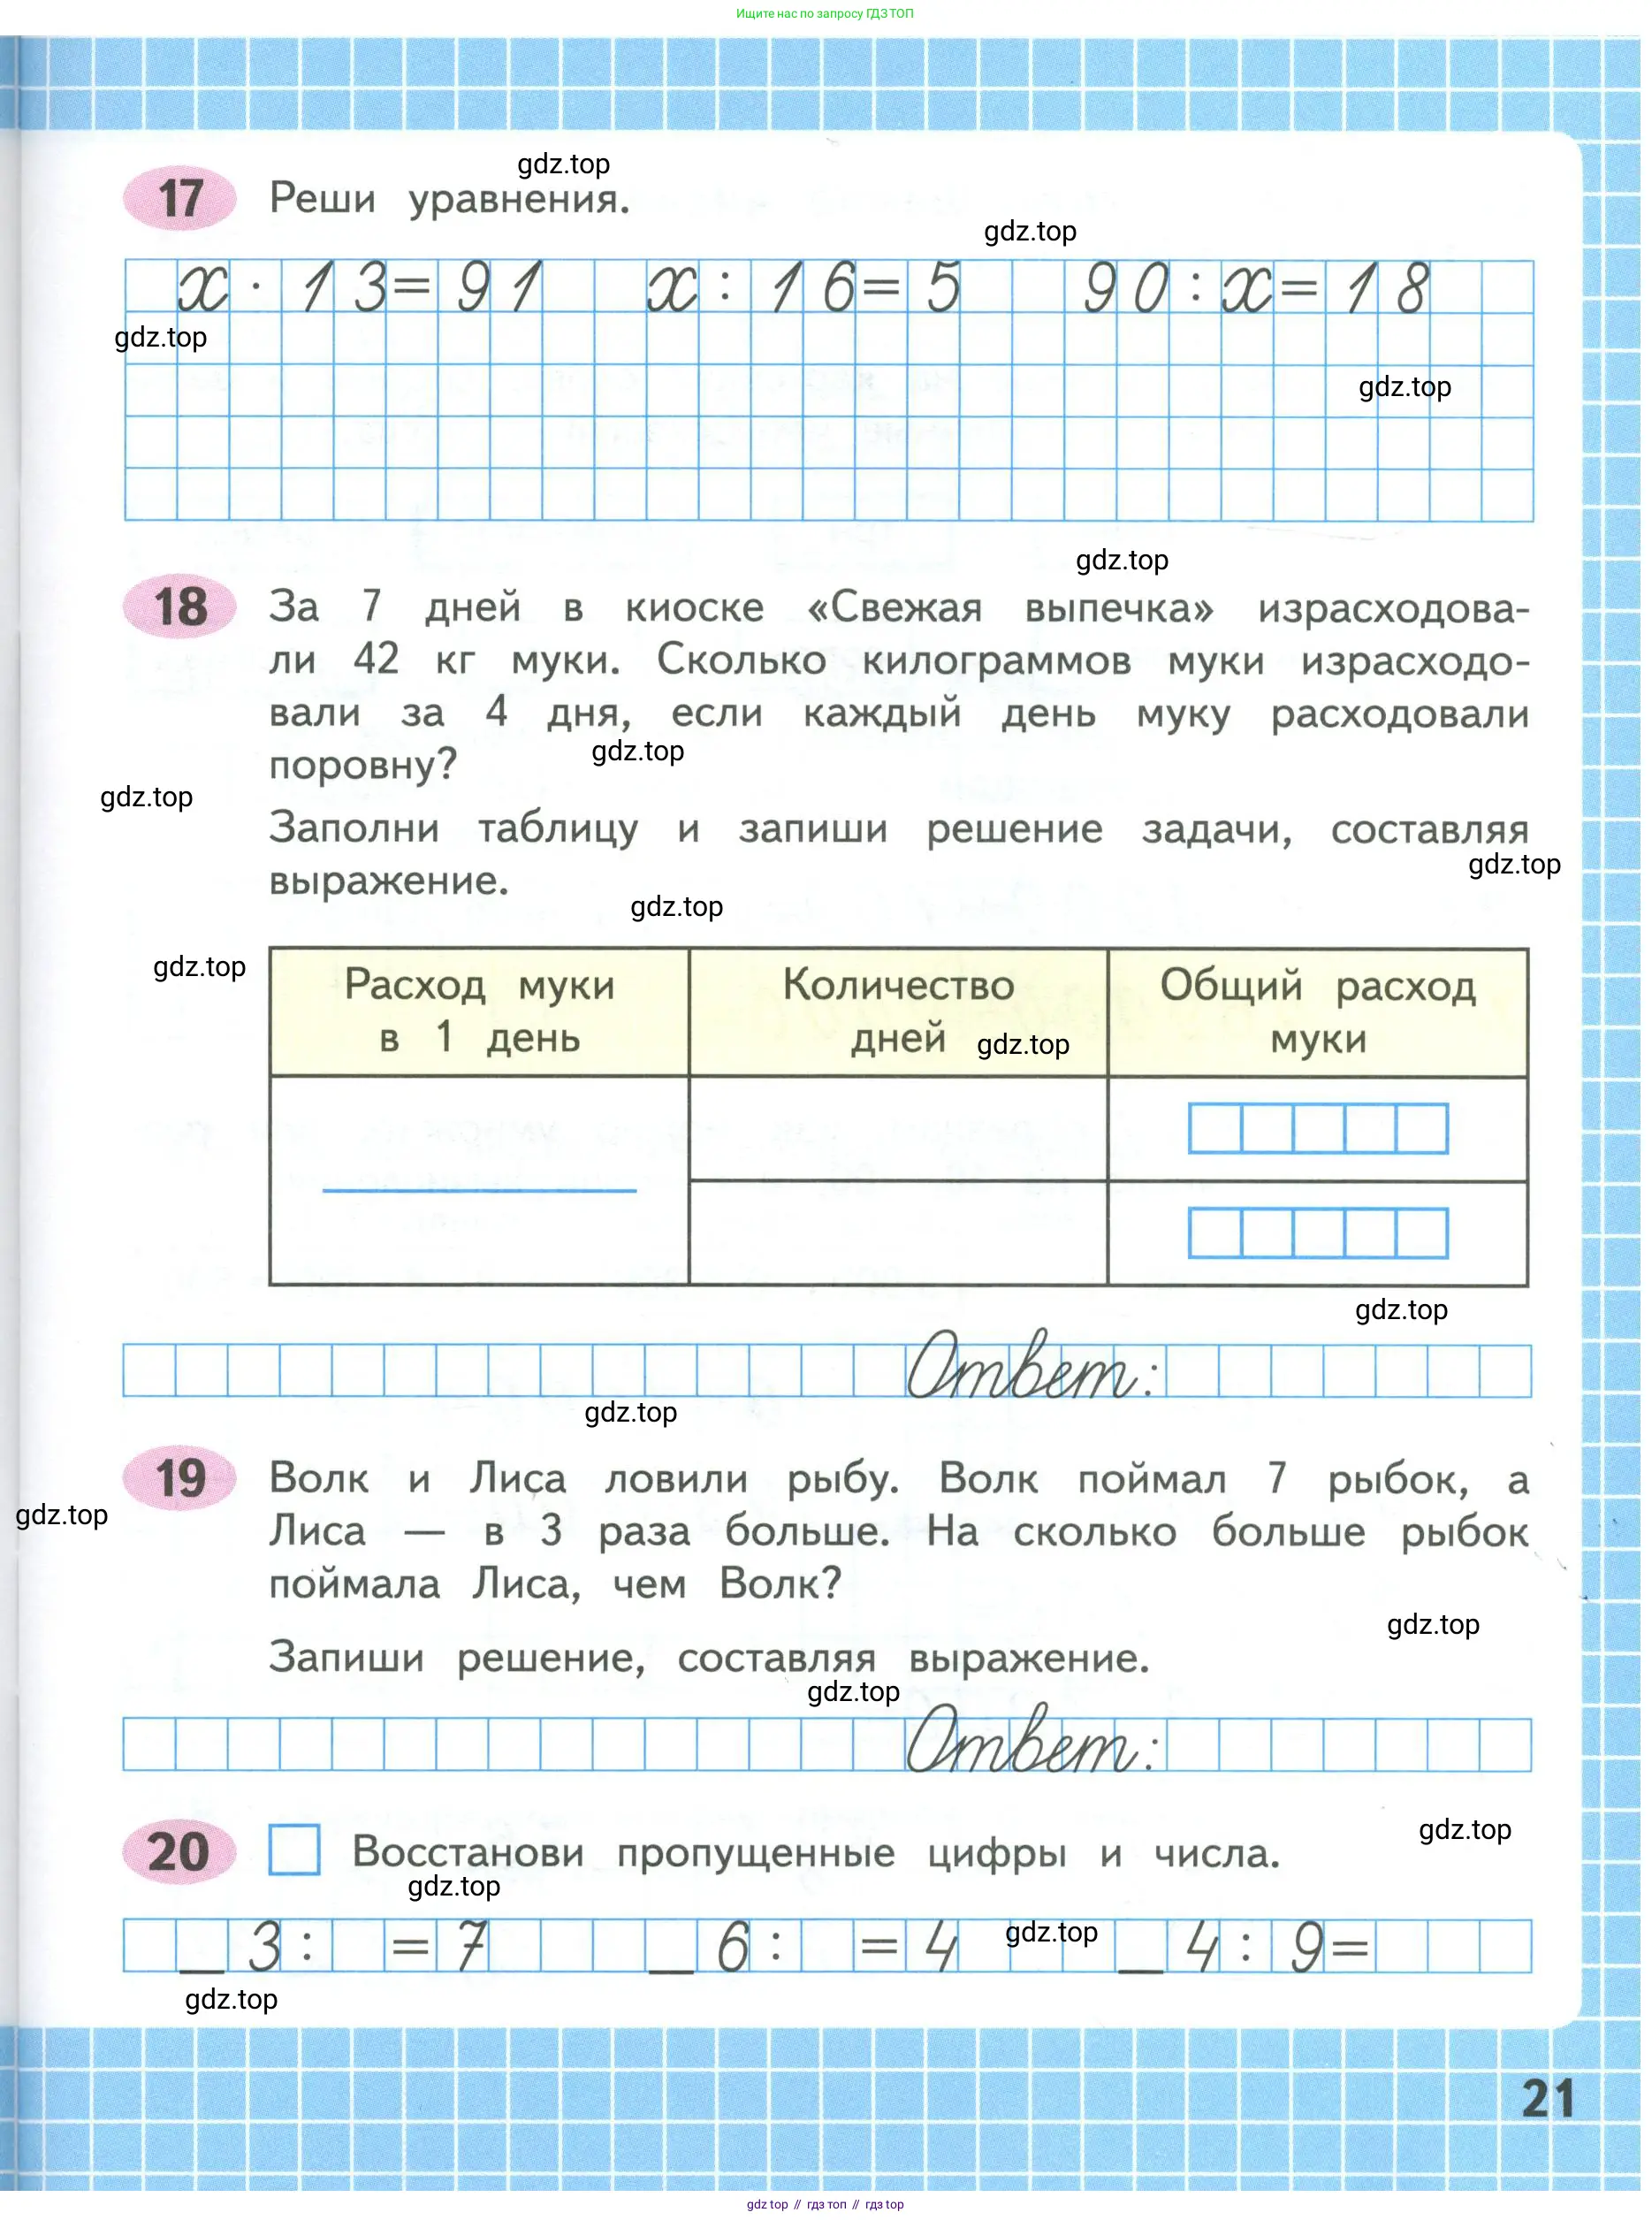 Ищите нас по запросу ГДЗ ТОП
gdz.top
17 Реши уравнения.
gdz.top
x · 13 = 91 x : 16 = 5 90 : x = 18
gdz.top
gdz.top
gdz.top
18 За 7 дней в киоске «Свежая выпечка» израсходова-
ли 42 кг муки. Сколько килограммов муки израсходо-
вали за 4 дня, если каждый день муку расходовали
поровну?
gdz.top
gdz.top
Заполни таблицу и запиши решение задачи, составляя
выражение.
gdz.top
gdz.top
gdz.top
Расход муки
в 1 день
Количество
дней
gdz.top
Общий расход
муки
gdz.top
Ответ:
gdz.top
19 Волк и Лиса ловили рыбу. Волк поймал 7 рыбок, а
gdz.top
Лиса — в 3 раза больше. На сколько больше рыбок
поймала Лиса, чем Волк?
gdz.top
Запиши решение, составляя выражение.
gdz.top
Ответ:
gdz.top
20 Восстанови пропущенные цифры и числа.
gdz.top
_3 : = 7 _6 : = 4 gdz.top _4 : 9 =
gdz.top
21
gdz top // гдз топ // gdz top